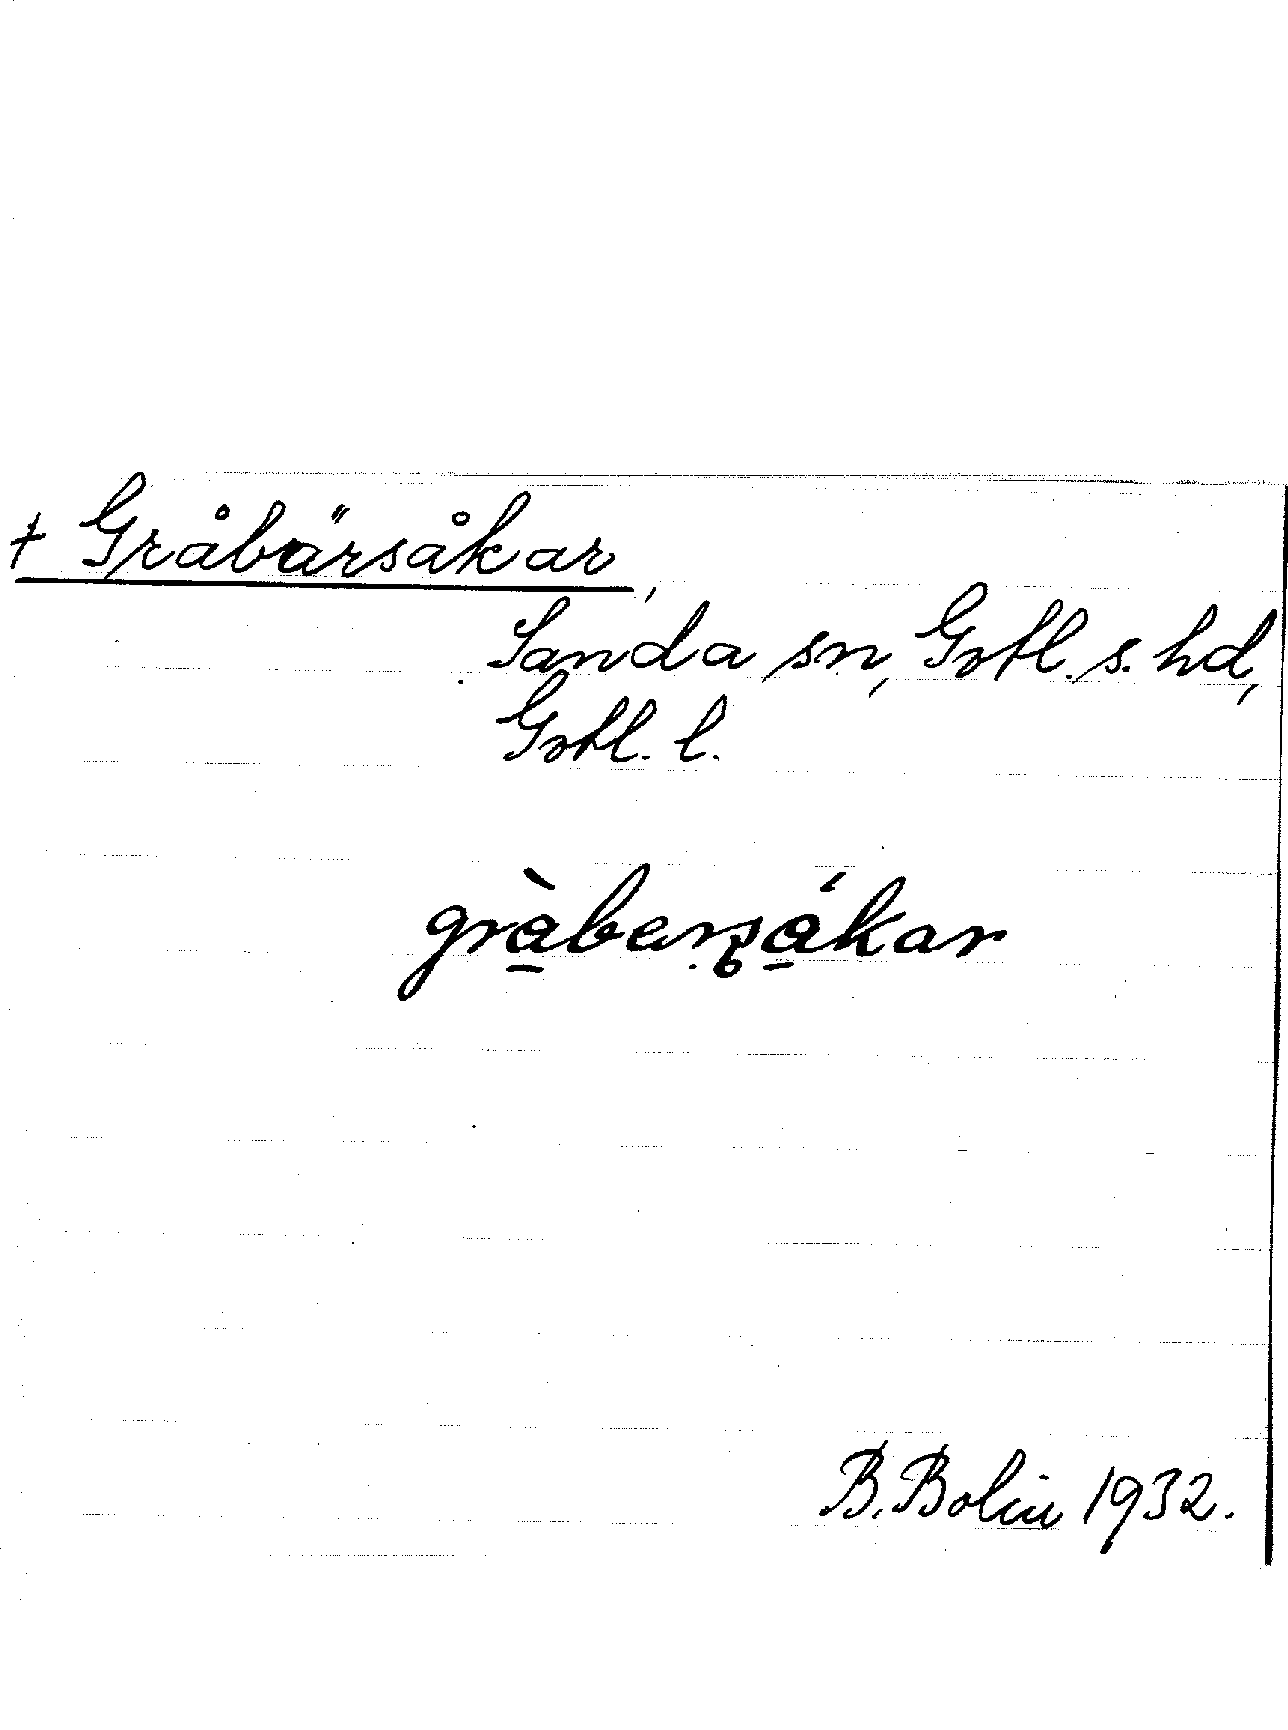 + Gråbärsåkar,
Sanda sn, Gotl. s. hd,
Gotl. l.
gràbersákar
B. Bolin 1932.